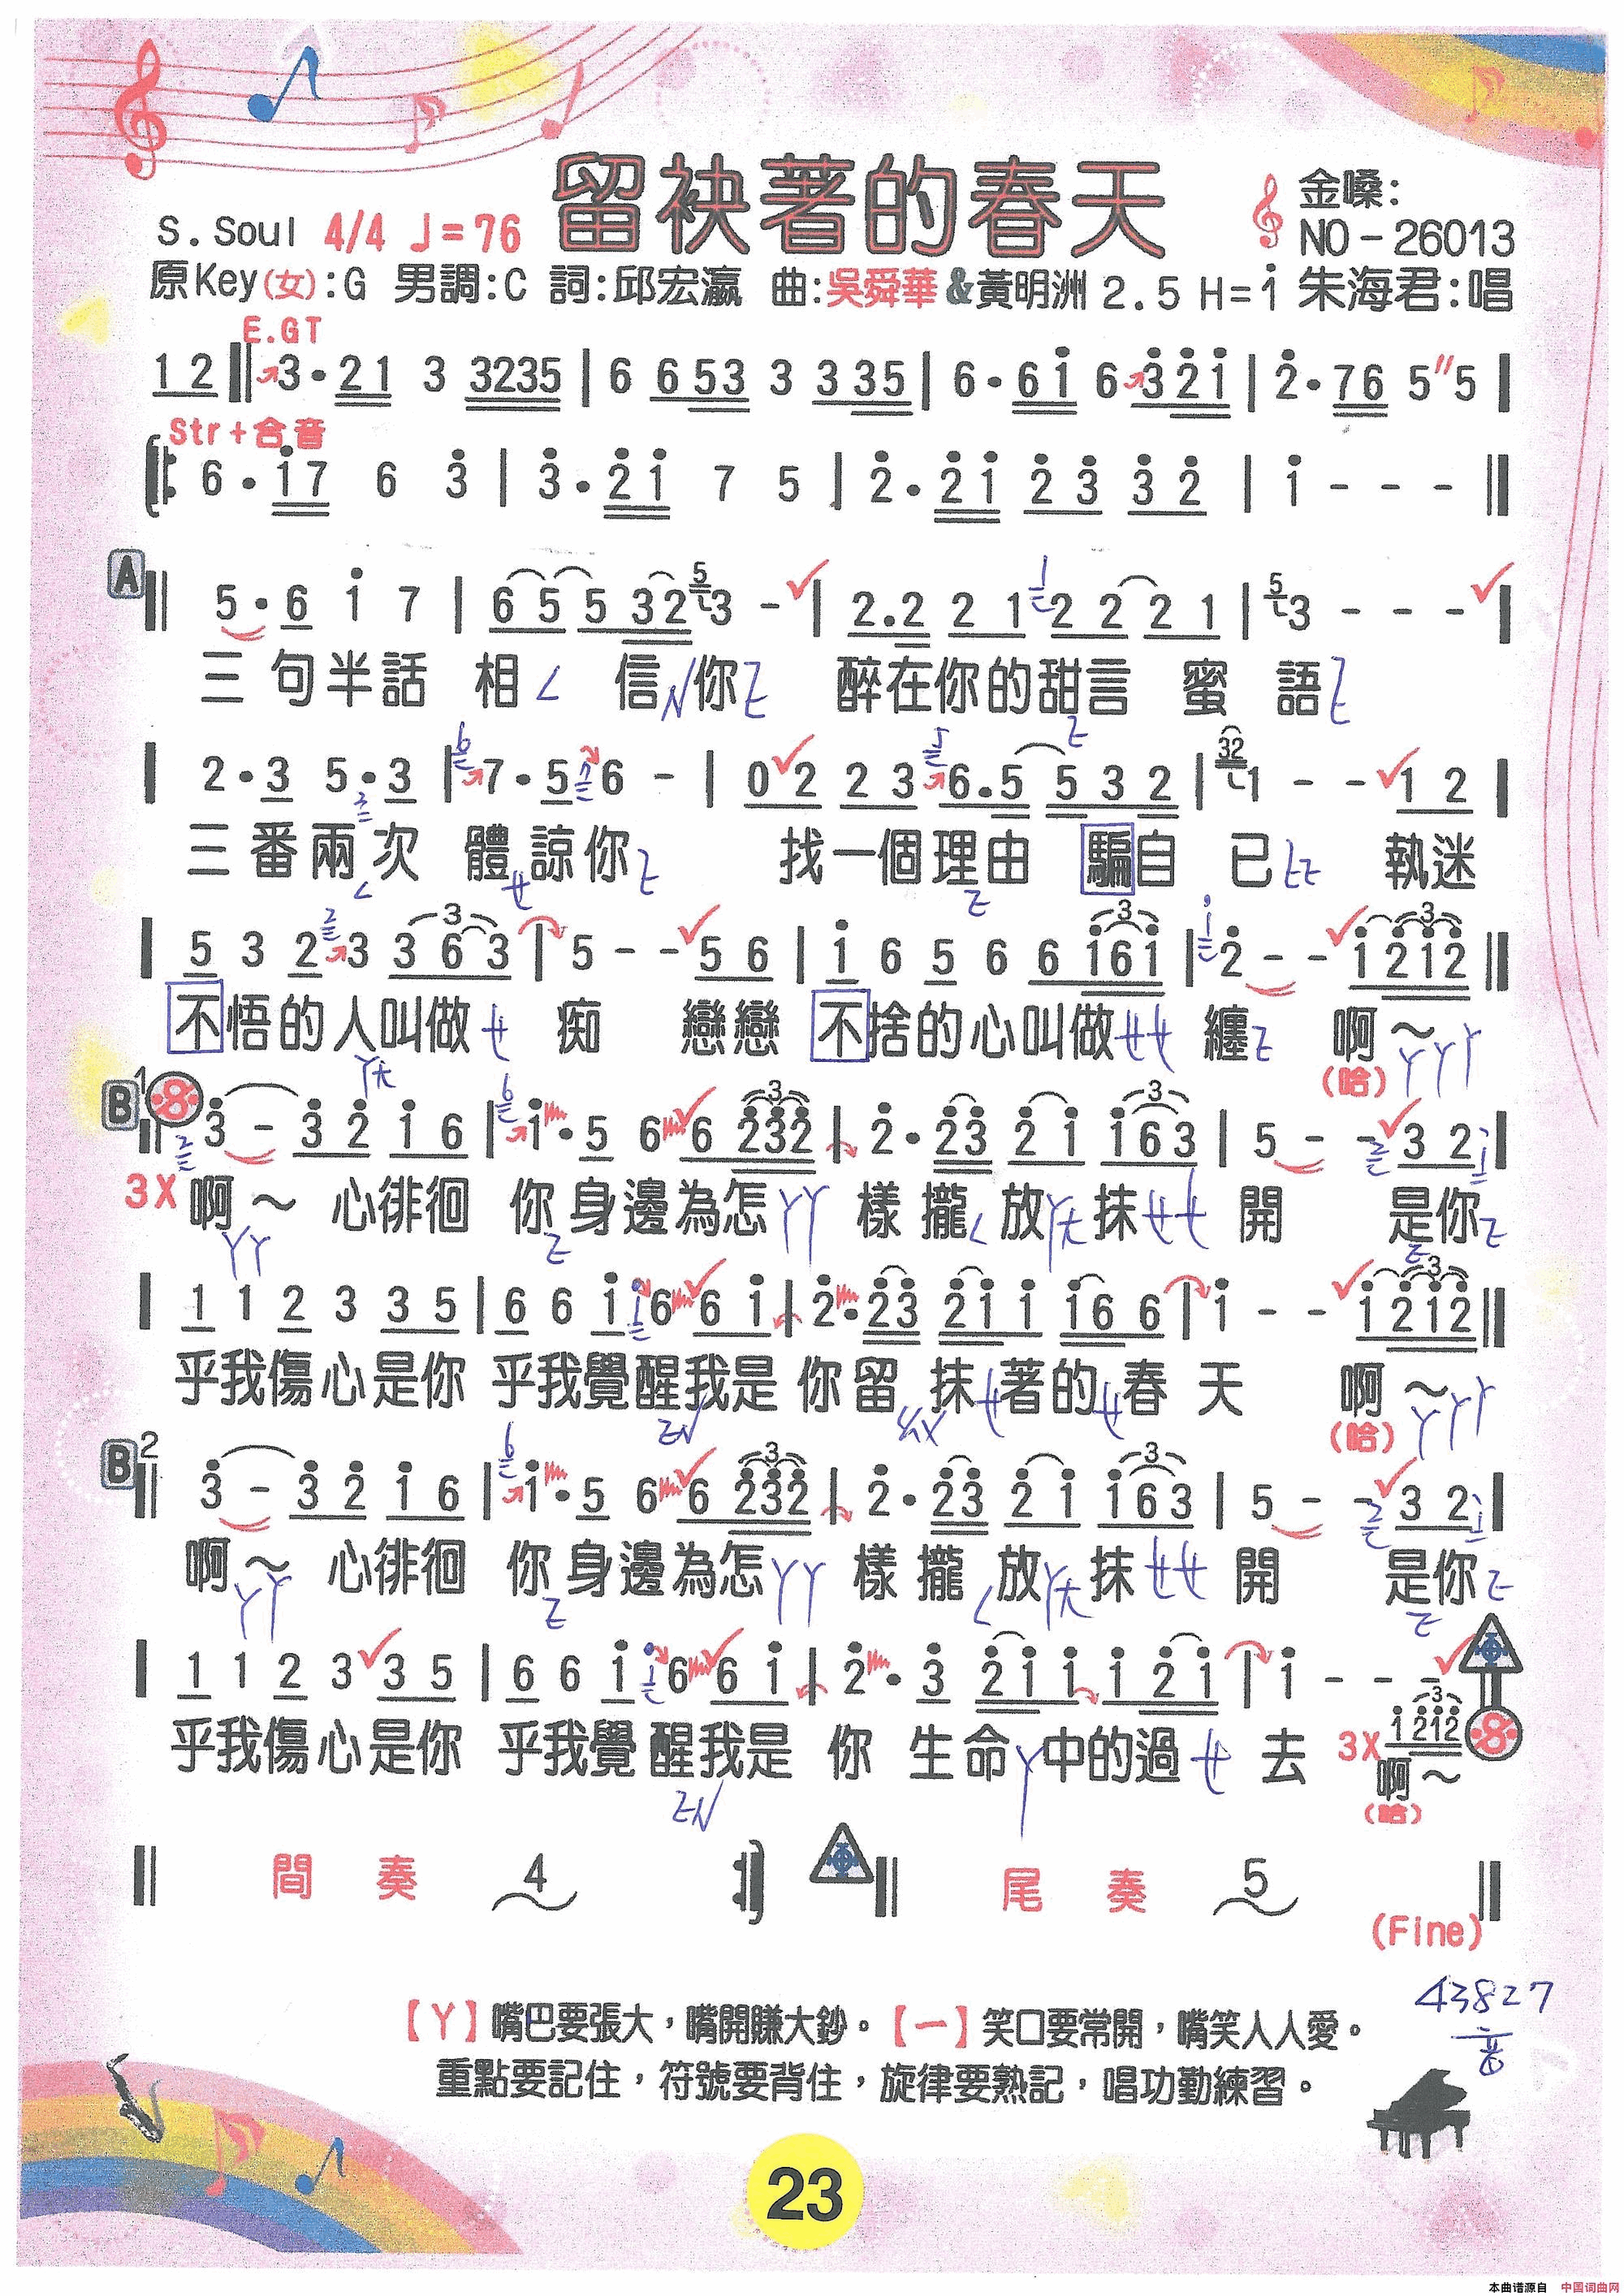 留袂著的春天
S.Soul 4/4 ♩=76
金嗓:
NO-26013
原Key(女):G 男調:C 詞:邱宏瀛 曲:吳舜華&黃明洲 2.5 H=i 朱海君:唱
E.GT
1 2 3·21 3 3235 | 6 6 53 3 3 35 | 6·6i 6 3 2i | 2·76 5"5
Str+合音
6·i7 6 3 | 3·2i 7 5 | 2·2i 2 3 3 2 | i - - -
A
5·6 i 7 | 6 5 5 32 3 - | 2.2 2 1 2 2 2 1 | 3 - - -
三句半話 相 信 你 醉在你的甜言 蜜 語
2·3 5·3 | 7·5 6 - | 0 2 2 3 6.5 5 3 2 | 1 - - 1 2
三番兩次 體諒你 找一個理由 騙自 已 執迷
5 3 2 3 3 6 3 | 5 - - 5 6 | i 6 5 6 6 i6i | 2 - - i 2i2
不悟的人叫做 痴 戀戀 不捨的心叫做 纏 啊～
(哈)
B1
3 - 3 2 i 6 | i·5 6 6 232 | 2·23 2 i i 6 3 | 5 - - 3 2
3X 啊～ 心徘徊 你身邊為怎 樣攏 放 抹 開 是你
1 1 2 3 3 5 | 6 6 i 6 6 i | 2·23 2i i i6 6 | i - - i 2i2
乎我傷心是你 乎我覺醒我是 你留 抹 著的 春 天 啊～
(哈)
B2
3 - 3 2 i 6 | i·5 6 6 232 | 2·23 2 i i 6 3 | 5 - - 3 2
啊～ 心徘徊 你身邊為怎 樣攏 放 抹 開 是你
1 1 2 3 3 5 | 6 6 i 6 6 i | 2·3 2i i i 2i | i - - -
3X i 2i2
乎我傷心是你 乎我覺醒我是 你 生命 中的過 去 啊～
(哈)
間 奏 4 尾 奏 5
(Fine)
43827
音
【ㄚ】嘴巴要張大，嘴開賺大鈔。【一】笑口要常開，嘴笑人人愛。
重點要記住，符號要背住，旋律要熟記，唱功勤練習。
23
本曲谱源自 中国词曲网